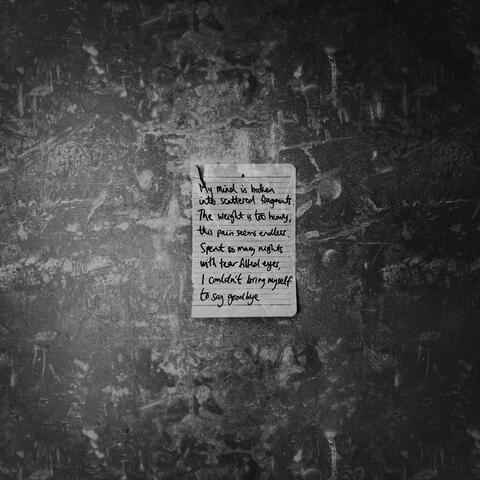 My mind is broken
into scattered fragments.
The weight is too heavy,
this pain seems endless.
Spent so many nights
with tear filled eyes,
I couldn't bring myself
to say goodbye